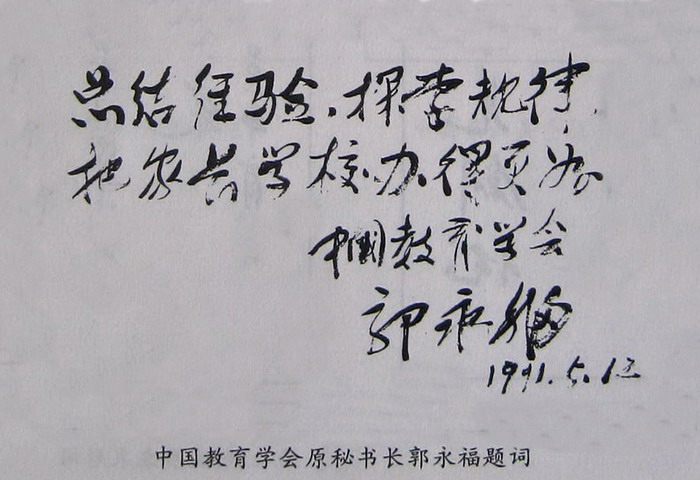 总结经验，探索规律，
把家长学校办得更好
中国教育学会
郭永福
1991.5.12
中国教育学会原秘书长郭永福题词